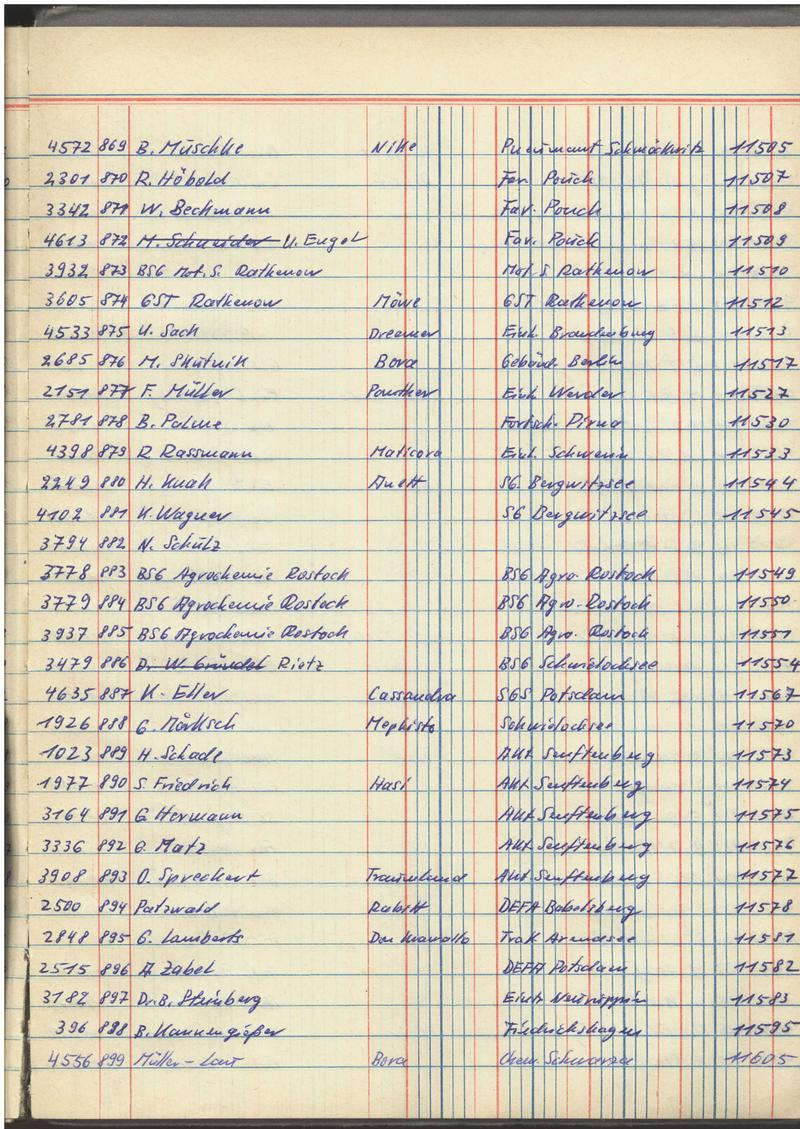 4572 869 B. Müschke Nike Pneumant Schmöckwitz 11505
2301 870 R. Höbold Fav. Pouch 11507
3342 871 W. Beckmann Fav. Pouch 11508
4613 872 M. Schneider U. Engel Fav. Pouch 11509
3932 873 BSG Mot. S. Rathenow Mot. S Rathenow 11510
3605 874 GST Rathenow Möwe GST Rathenow 11512
4533 875 U. Sach Dreamer Einh. Brandenburg 11513
2685 876 M. Skutnik Bora Gebäud. Berlin 11517
2151 877 F. Müller Panther Einh Werder 11527
2781 878 B. Palme Fortsch. Pirna 11530
4398 879 R Rassmann Maticora Einh. Schwerin 11533
2249 880 H. Knak Anett SG. Bergwitzsee 11544
4102 881 K. Wagner SG Bergwitzsee 11545
3794 882 N. Schulz
3778 883 BSG Agrochemie Rostock BSG Agro. Rostock 11549
3779 884 BSG Agrochemie Rostock BSG Agro. Rostock 11550
3937 885 BSG Agrochemie Rostock BSG Agro. Rostock 11551
3479 886 Dr. W. Gründel Rietz BSG Schwielochsee 11554
4635 887 K. Eller Cassandra SGS Potsdam 11567
1926 888 G. Mörksch Mephisto Schwielochsee 11570
1023 889 H. Schade AKt Senftenberg 11573
1977 890 S. Friedrich Hasi AKt Senftenberg 11574
3164 891 G Hermann AKt Senftenberg 11575
3336 892 G. Matz AKt Senftenberg 11576
3908 893 O. Spreckert Traumhund AKt Senftenberg 11577
2500 894 Patzwald Rabitt DEFA Babelsberg 11578
2848 895 G. Lamberts Don Trakt Arendsee 11581
2515 896 A Zabel DEFA Potsdam 11582
3182 897 Dr. B. Steinberg Einh Neuruppin 11583
396 898 B. Kannengießer Friedrichshagen 11595
4556 899 Müller - Bora Chem. Schwarza 11605